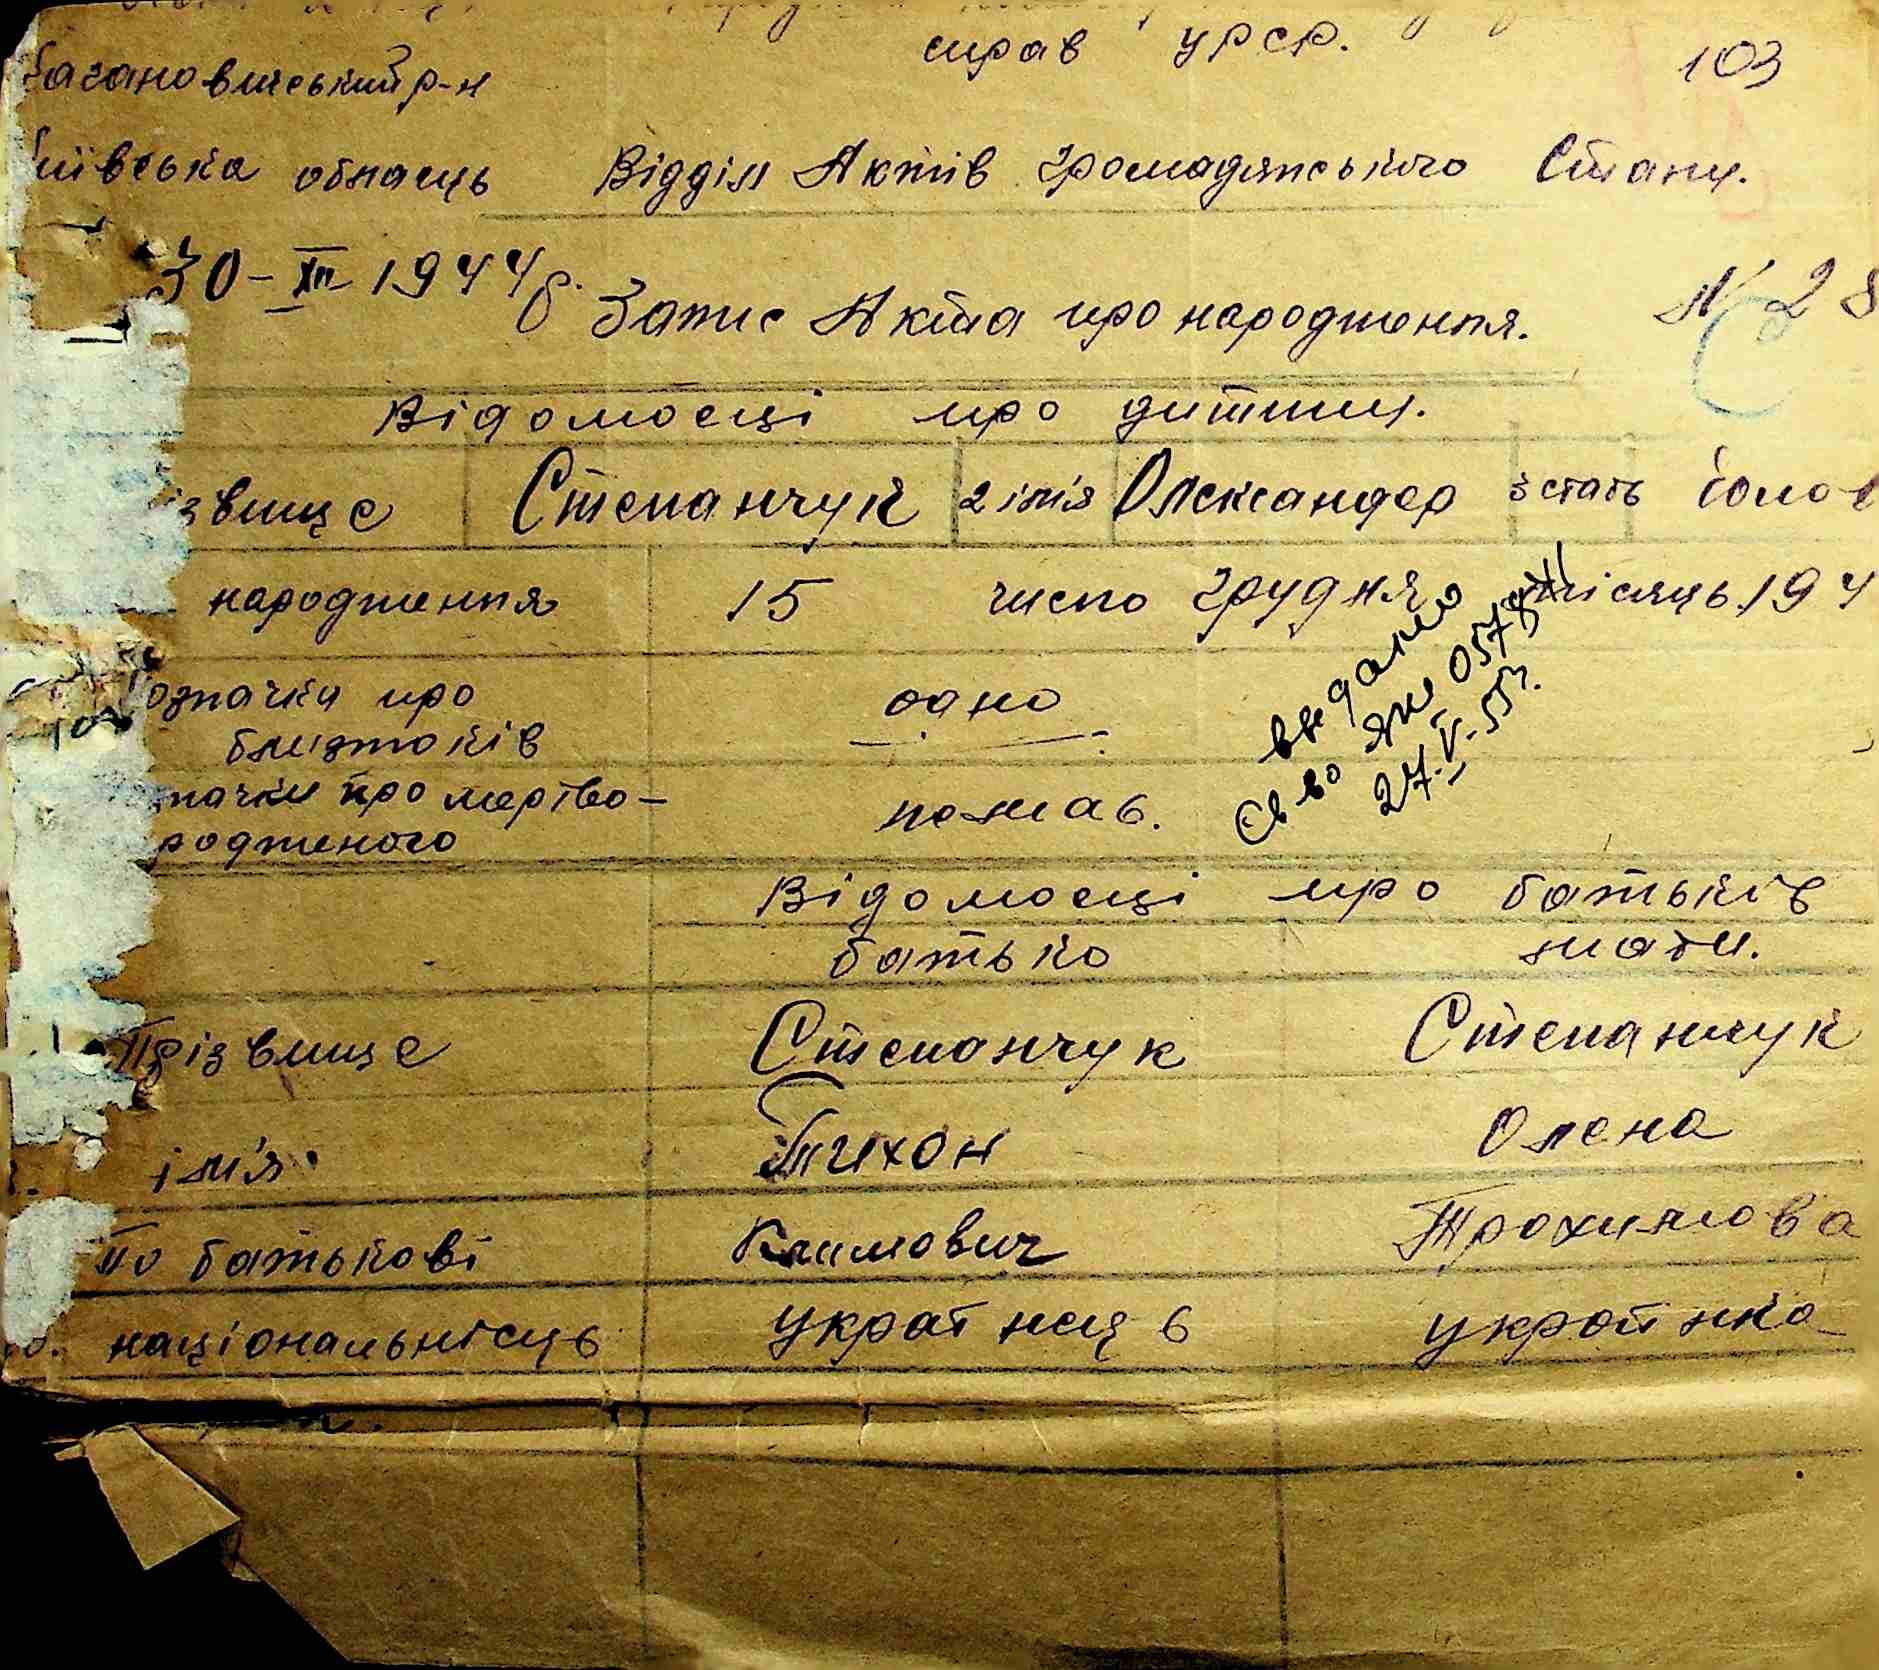 справ УРСР.
103
агановичський р-н
иївська область Відділ Актів Громадянського Стану.
30-XII 1944 р. Запис Акта про народження. № 28
Відомосці про дитину.
ізвище Степанчук 2 ім'я Олександер 3 стать чолов
народження 15 число грудня місяць 194
означка про одно
близнюків
начки про мертво- немає.
родженого
видано
Св-во ЯЖ 0578
27.V-55 г.
Відомосці про батьків
батько мати.
Прізвище Степанчук Степанчук
ім'я Тихон Олена
по батькові Климович Трохимова
національнісць українець українка